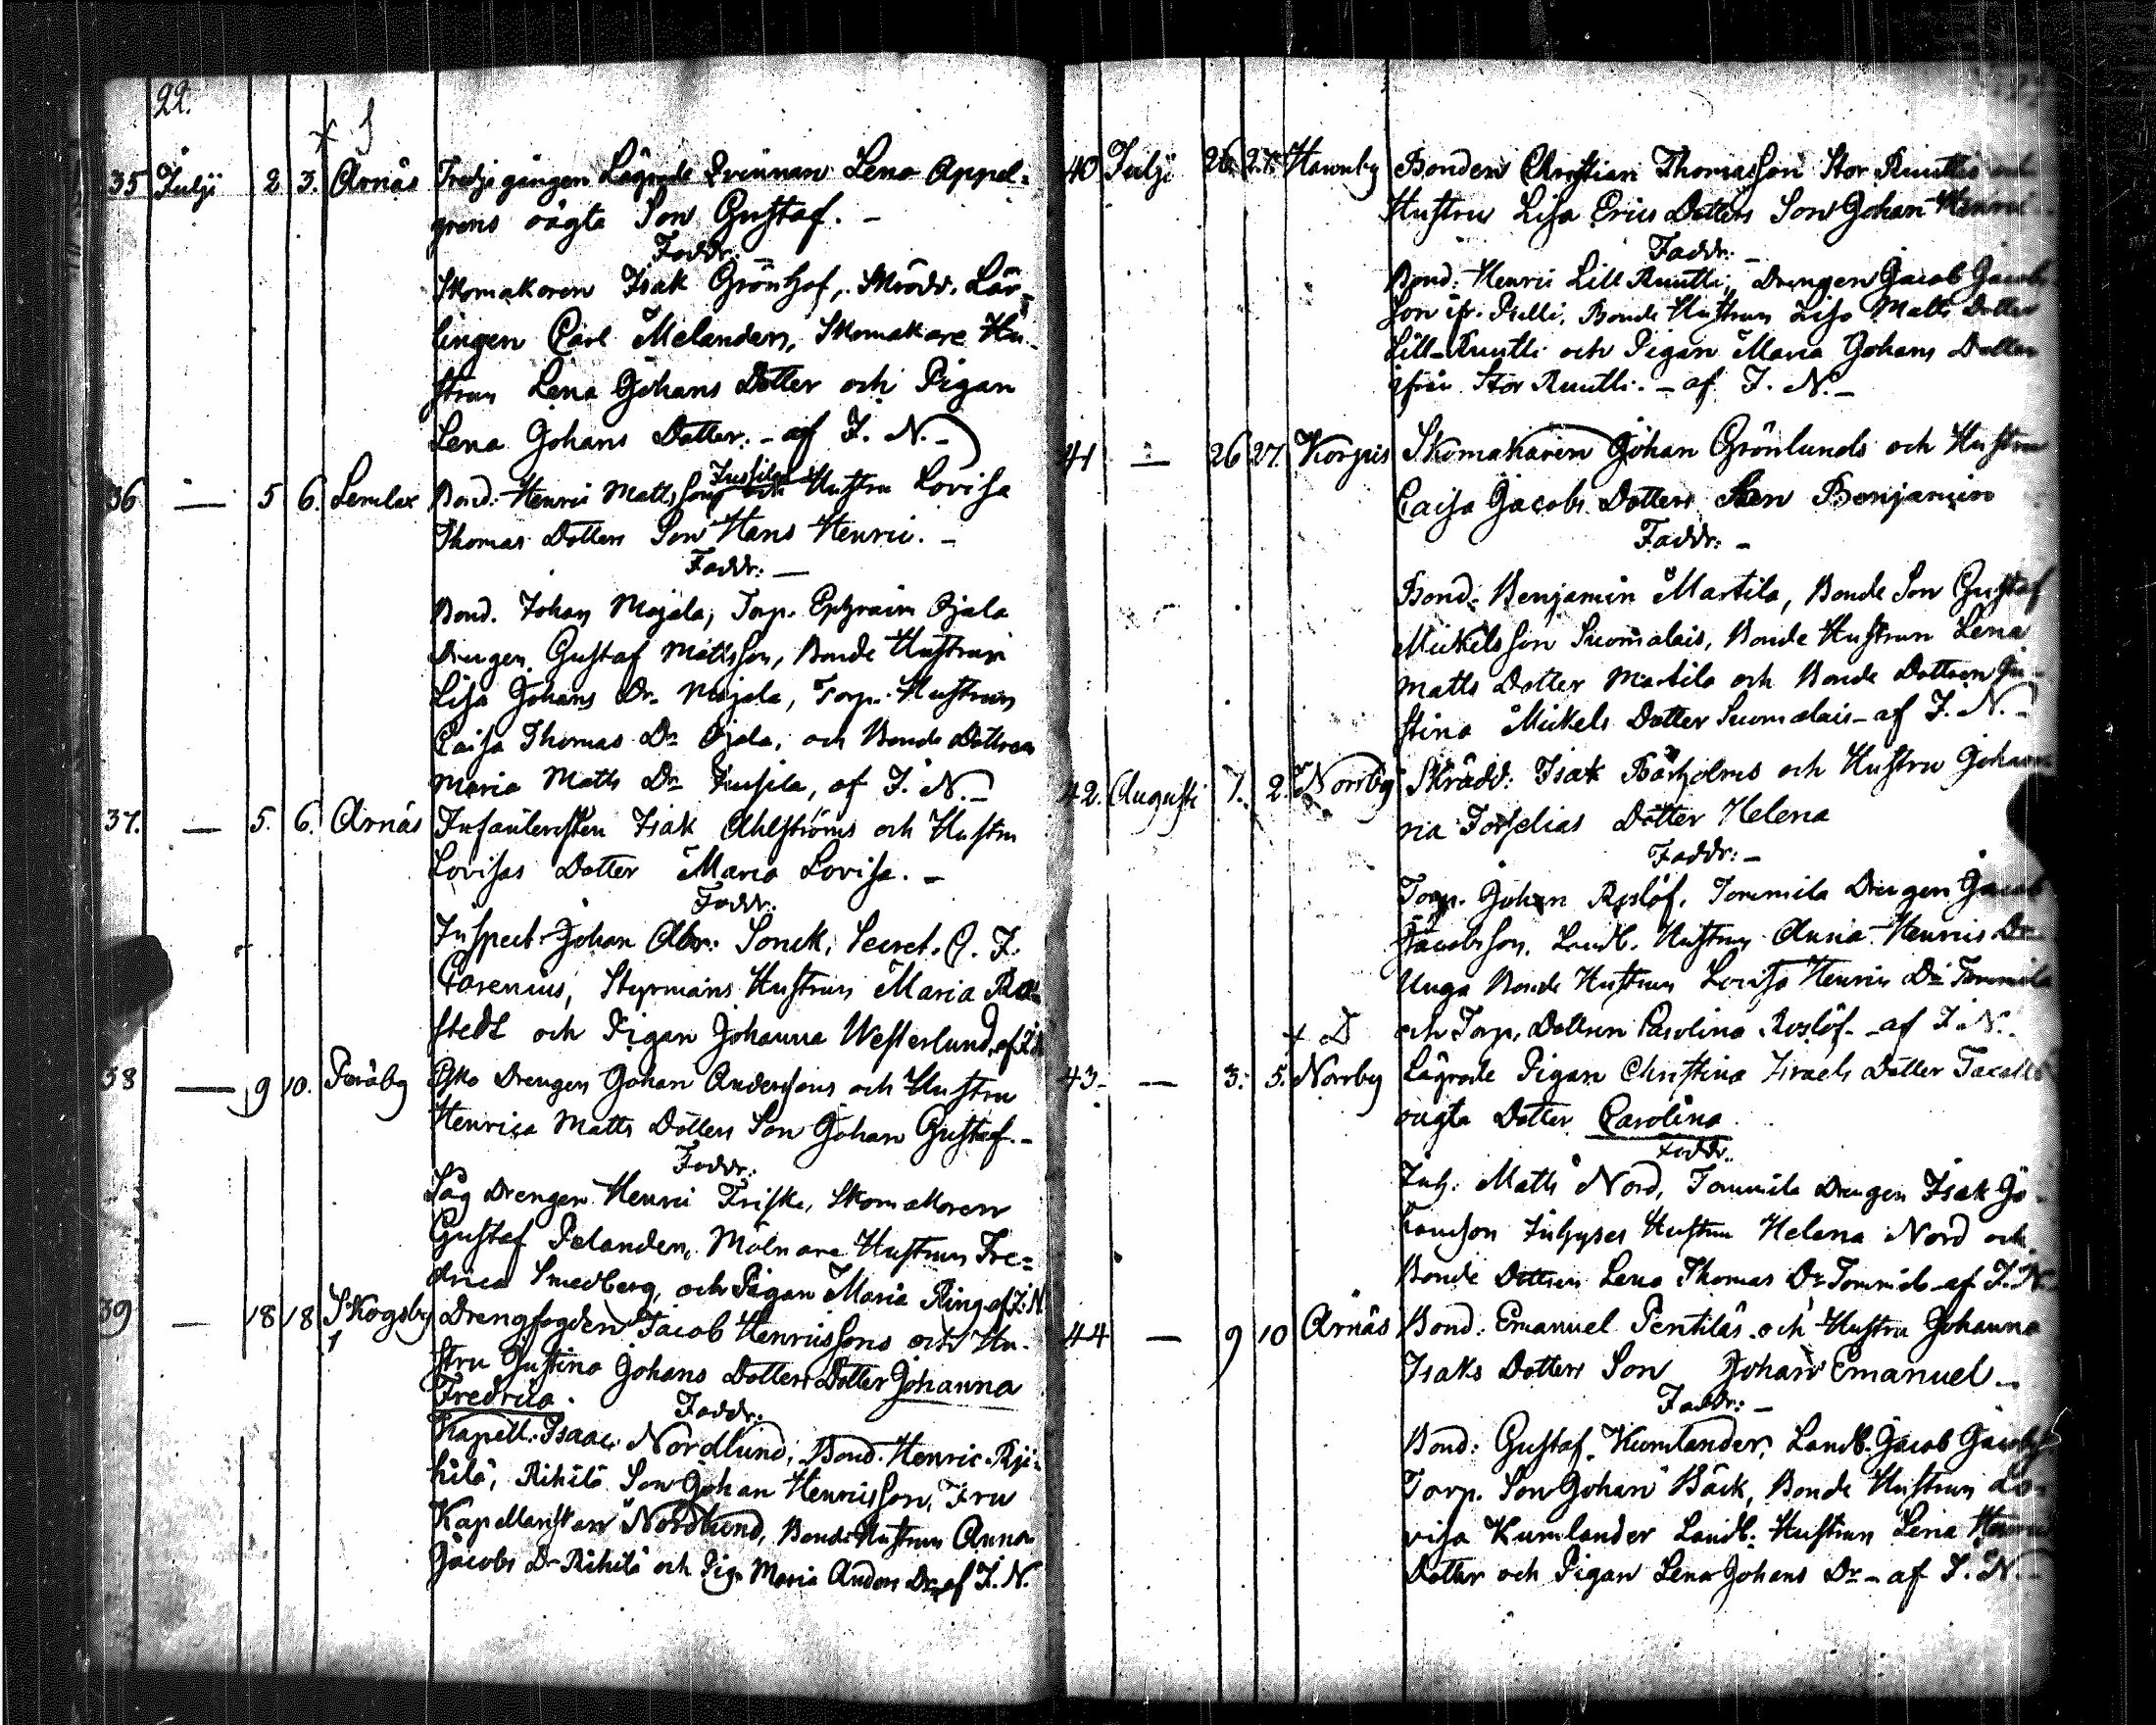 22.
35 Julji 2 3. Arnäs Tredje gången Lägrade Qvinnan Lena Appel=
grens oägta Son Gustaf. -
Faddr: -
Skomakaren Isak Grönhof, Skrädd. Lär-
lingen Carl Melander, Skomakare Hu-
strun Lena Johans Dotter och Pigan
Lena Johans Dotter. - af J. N. -
36 — 5 6. Lemlax Bond: Henric Mattssons Jussilas och Hustru Lovisa
Thomas Dotters Son Hans Henric. -
Faddr: —
Bond. Johan Majala, Torp. Ephraim Ojala
Drengen Gustaf Mattsson, Bonde Hustrun
Lisa Johans Dr. Majala, Torp. Hustrun
Caisa Thomas Dr. Ojala, och Bonde Dottren
Maria Matts Dr. Jussila, af J. N. -
37. — 5. 6. Arnäs Infanteristen Isak Ahlströms och Hustru
Lovisas Dotter Maria Lovisa. -
Faddr:
Inspect. Johan Abr: Sonck, Secret. C. J.
Carenius, Styrmans Hustrun Maria
stedt och Pigan Johanna Westerlund, af J. N.
38 — 9 10. Poräby Drengen Johan Anderssons och Hustru
Henrica Matts Dotters Son Johan Gustaf. -
Faddr:
Såg Drengen Henric Friske, Skomakaren
Gustaf Pelander, Mölnare Hustrun Fre=
drica Smedberg, och Pigan Maria Ring af J. N.
39 — 18 18 Skogsby Drengfogden Jacob Henricssons och Hu-
stru Justina Johans Dotters Dotter Johanna
Fredrica.
Faddr:
Kapell. Isaac Nordlund, Bond. Henric Riji=
hilä, Rihilä Son Johan Henricsson, Fru
Kapellanskan Nordlund, Bonde Hustrun Anna
Jacobs Dr Rihilä och Pig. Maria Anders Dr af J. N.
40 Julji 26. 27. Hawnby Bonden Christian Thomasson Stor Ruuttis och
Hustru Lisa Erics Dotters Son Johan Henric
Faddr: -
Bond: Henric Lill Ruutti, Drengen Jacob Jacobs
son ifr. Pielli, Bonde Hustrun Lisa Matts Dotter
Lill-Ruutti och Pigan Maria Johans Dotter
ifrån Stor Ruutti. - af J. N. -
41 — 26 27. Korpis Skomakaren Johan Grönlunds och Hustru
Caisa Jacobs Dotters Son Benjamin
Faddr: -
Bond: Benjamin Martila, Bonde Son Gustaf
Mickelsson Suomalais, Bonde Hustrun Lena
Matts Dotter Martila och Bonde Dottren Ju-
stina Mickels Dotter Suomalais - af J. N. -
42. Augusti 1. 2. Norrby Skrädd: Isak Björkholms och Hustru Johan
na Forselias Dotter Helena
Faddr: -
Torp. Johan Roslöf, Tommila Drengen Jacob
Jacobsson, Landb. Hustrun Anna Henrics Dr
Unga Bonde Hustrun Lovisa Henrics Dr Tommila
och Torp. Dottren Carolina Roslöf - af J. N.
43 — 3. 5. Norrby Lägrade Pigan Christina Israels Dotter
oägta Dotter Carolina
Faddr.
Inh: Matts Nord, Tommila Drengen Isak Jo-
hansson Inhyses Hustrun Helena Nord och
Bonde Dottren Lena Thomas Dr Tommila - af J. N.
44 — 9 10 Arnäs Bond: Emanuel Pentiläs och Hustru Johanna
Isaks Dotters Son Johan Emanuel -
Faddr: -
Bond: Gustaf Kumlander, Landb. Jacob Jacobss
Torp. Son Johan Bäck, Bonde Hustrun Lo-
visa Kumlander Landb: Hustrun Lena Henrics
Dotter och Pigan Lena Johans Dr - af J. N. -